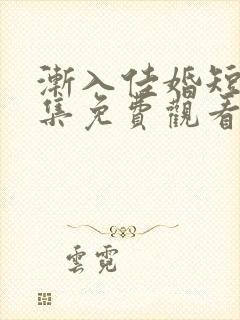 漸入佳婚短
集免費觀看
雲霓